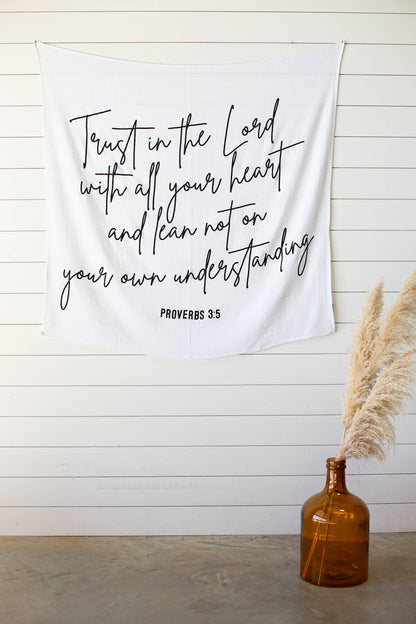 Trust in the Lord
with all your heart
and lean not on
your own understanding
PROVERBS 3:5